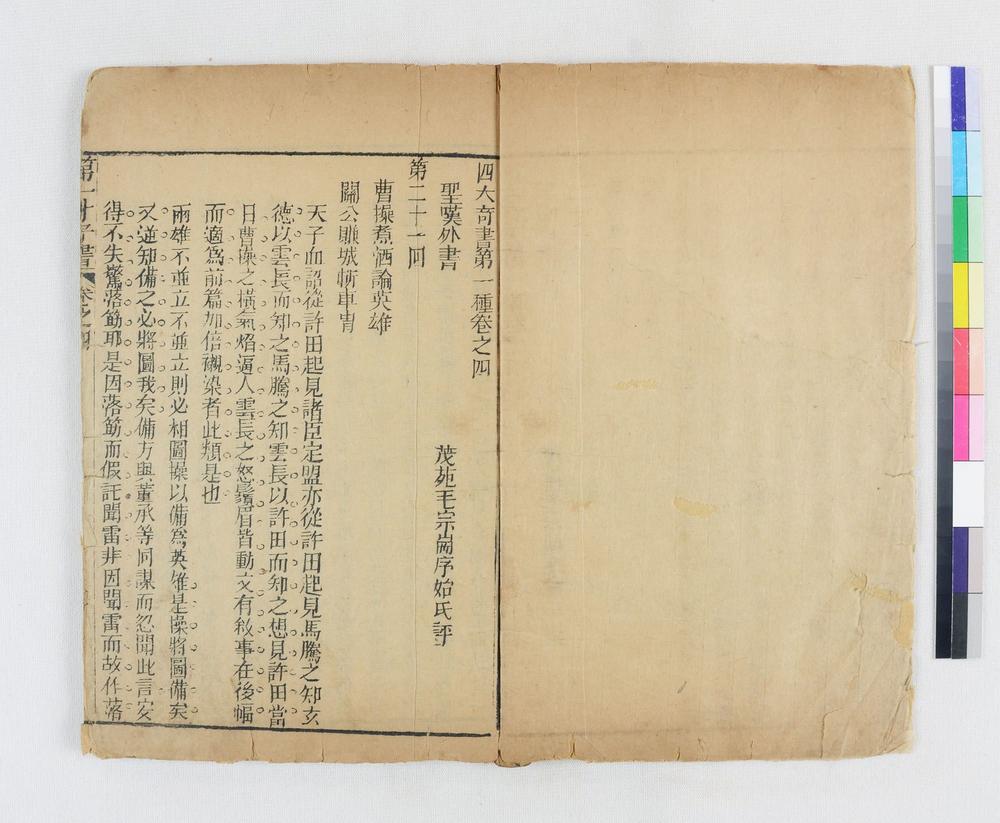 四大奇書第一種卷之四
聖嘆外書
茂苑毛宗崗序始氏評
第二十一回
曹操煮酒論英雄
關公賺城斬車冑
天子血詔從許田起見諸臣定盟亦從許田起見馬騰之知玄
德以雲長而知之馬騰之知雲長以許田而知之想見許田當
日曹操之橫氣焰逼人雲長之怒鬚眉皆動文有敘事在後幅
而適爲前篇加倍襯染者此類是也
兩雄不並立不並立則必相圖操以備爲英雄是操將圖備矣
又逆知備之必將圖我矣備方與董承等同謀而忽聞此言安
得不失驚落筯耶是因落筯而假託聞雷非因聞雷而故作落
第一才子書
卷之四